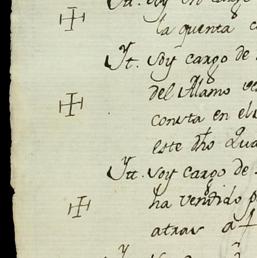 Yt. Soy en cargo
la quenta c
Yt. Soy cargo de
del Alamo
consta en el
este dho Qua
Ytt. Soy cargo de
ha vendido p
atras a